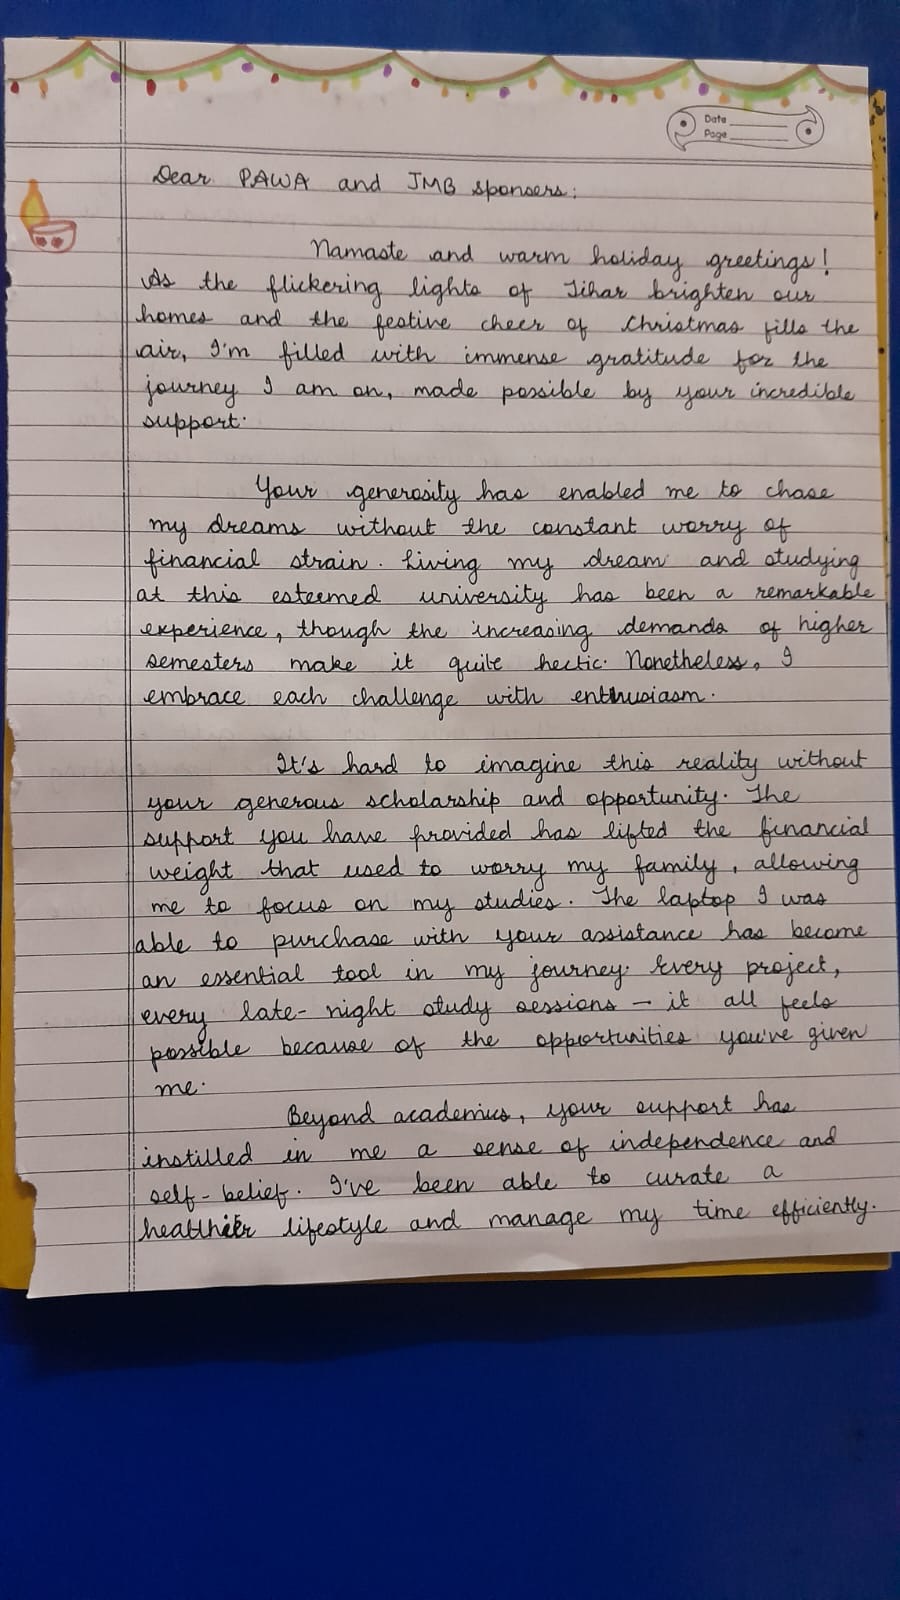 Date
Page
Dear PAWA and JMB sponsers:
Namaste and warm holiday greetings!
As the flickering lights of Tihar brighten our
homes and the festive cheer of Christmas fills the
air, I'm filled with immense gratitude for the
journey I am on, made possible by your incredible
support.
Your generosity has enabled me to chase
my dreams without the constant worry of
financial strain. Living my dream and studying
at this esteemed university has been a remarkable
experience, though the increasing demands of higher
semesters make it quite hectic. Nonetheless, I
embrace each challenge with enthusiasm.
It's hard to imagine this reality without
your generous scholarship and opportunity. The
support you have provided has lifted the financial
weight that used to worry my family, allowing
me to focus on my studies. The laptop I was
able to purchase with your assistance has become
an essential tool in my journey. Every project,
every late-night study sessions - it all feels
possible because of the opportunities you've given
me.
Beyond academics, your support has
instilled in me a sense of independence and
self-belief. I've been able to curate a
healthier lifestyle and manage my time efficiently.